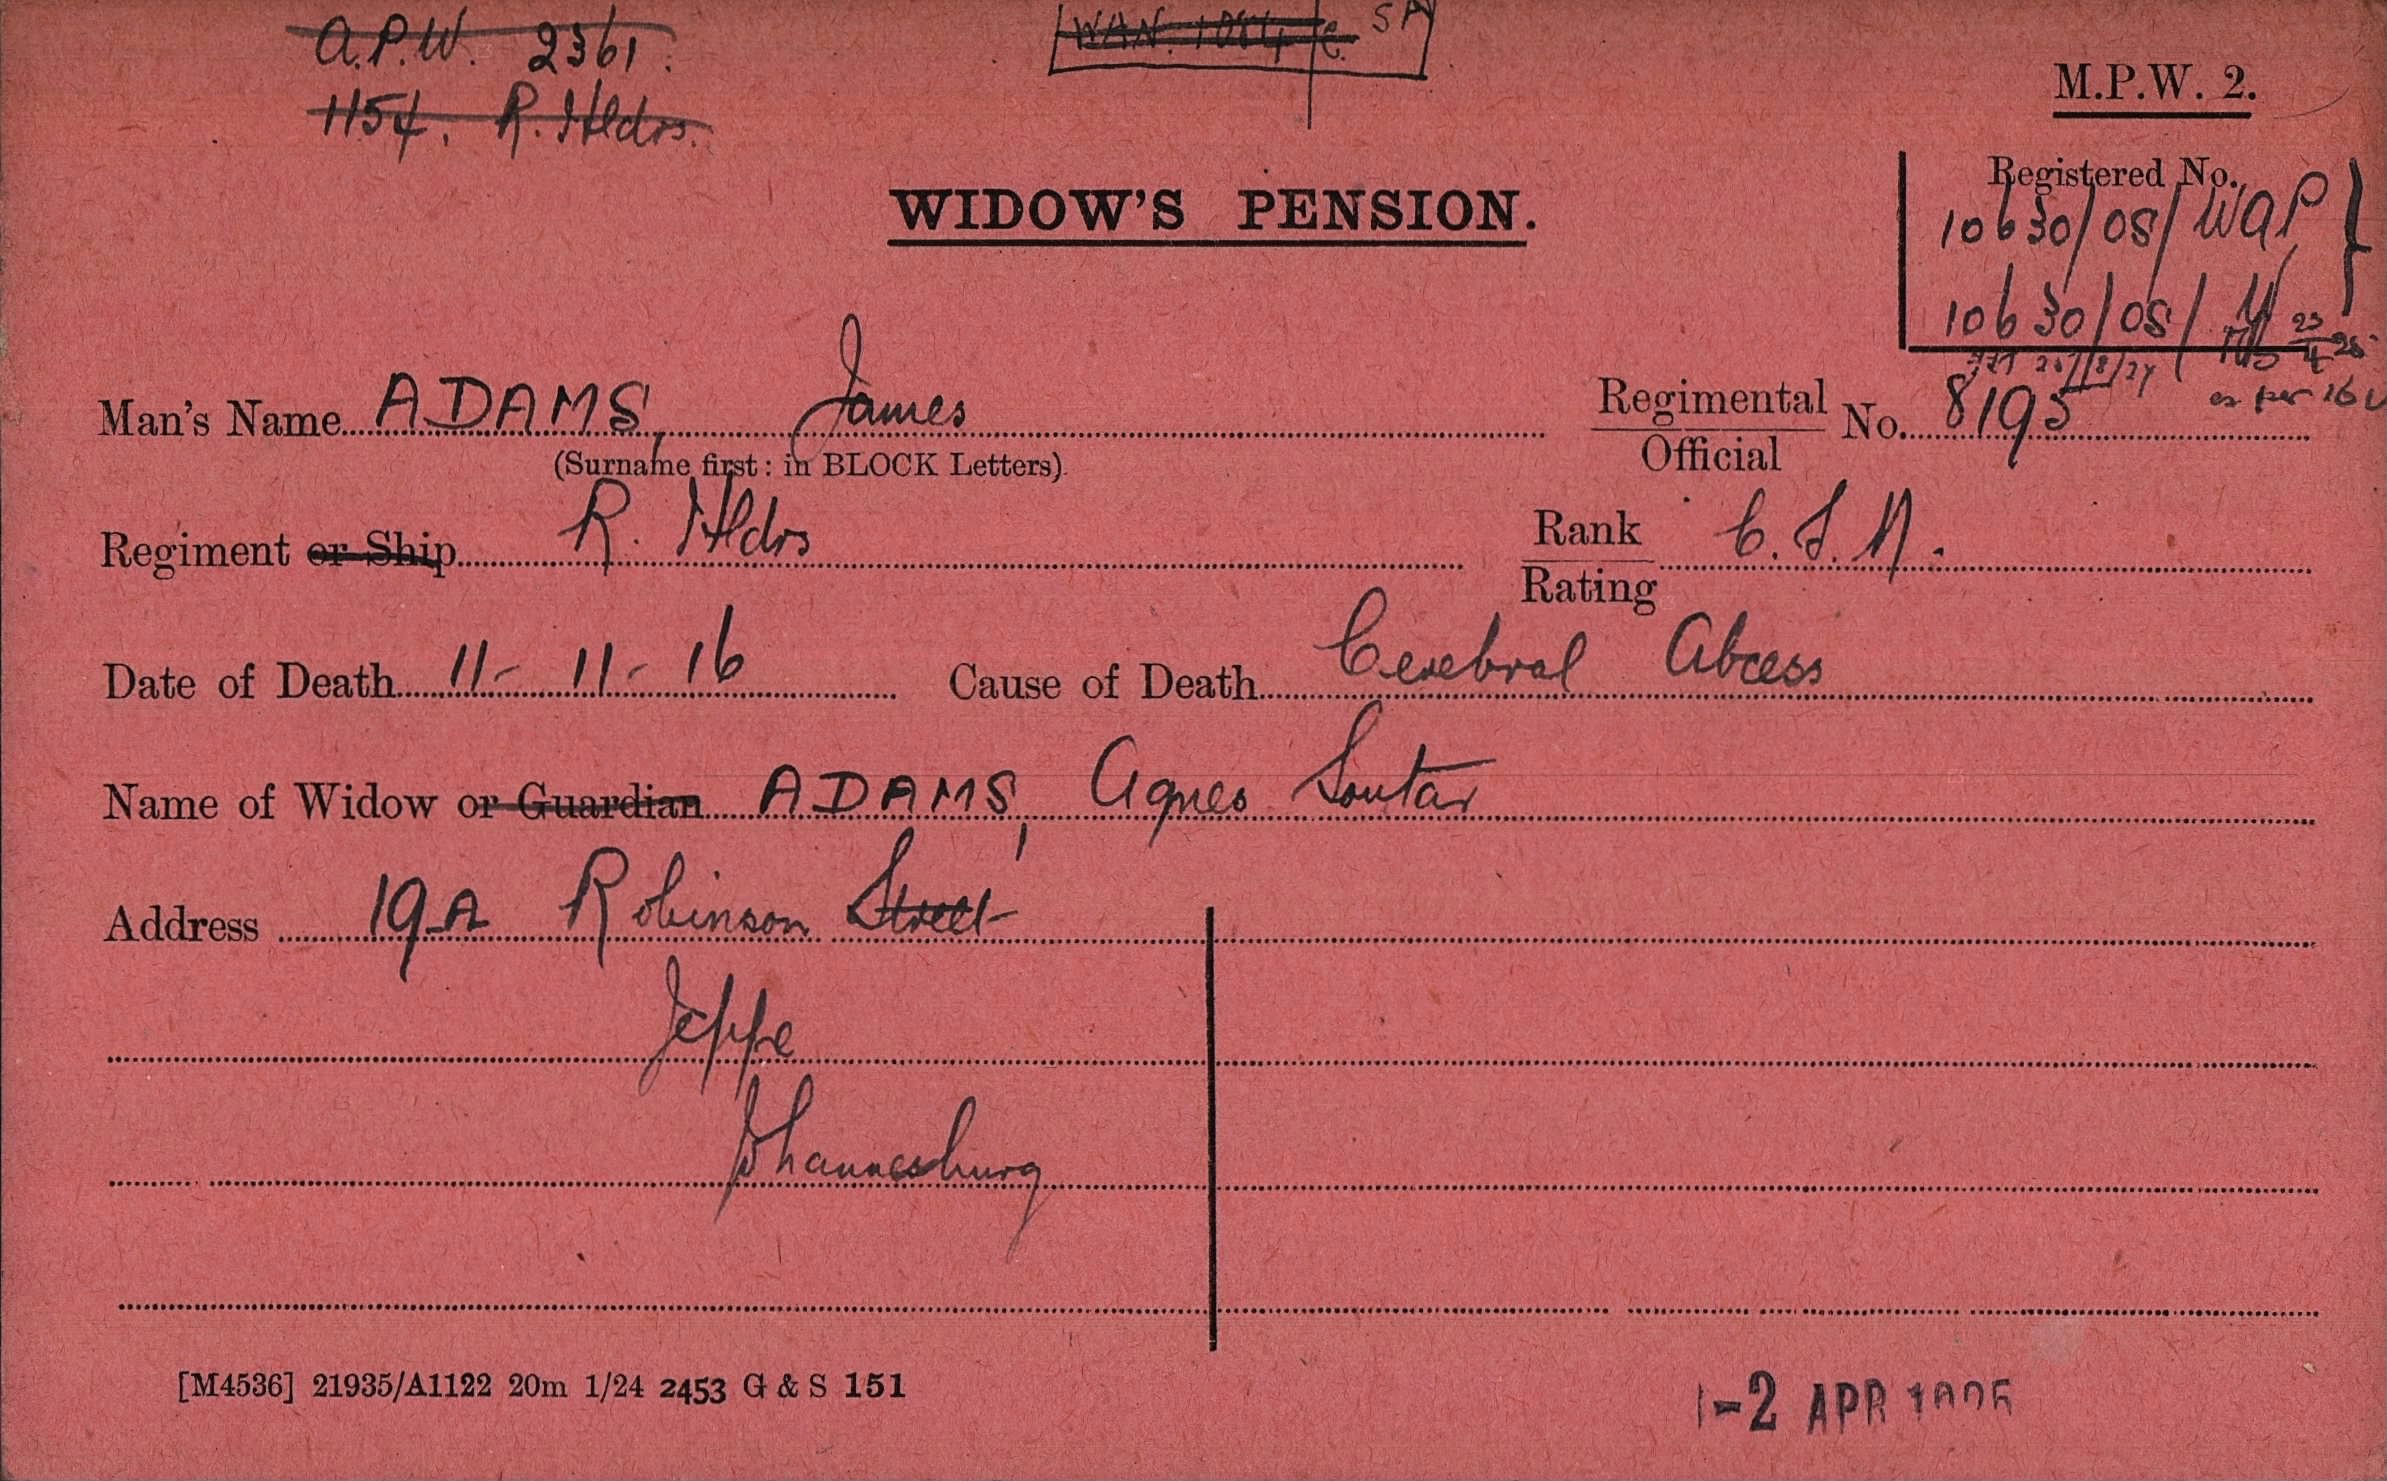 A.P.W. 2361.
1154. R. Hldrs.
WAN. 1084/C. SA
M.P.W. 2.
WIDOW'S PENSION.
Registered No.
10630/08/WAP
10630/08/
Man's Name ADAMS, James
(Surname first: in BLOCK Letters).
Regimental
Official No. 8195
Regiment or Ship R. Hldrs
Rank
Rating C.S.M.
Date of Death 11-11-16 Cause of Death Cerebral Abcess
Name of Widow or Guardian ADAMS, Agnes Soutar
Address 19A Robinson Street
Jeppe
Johannesburg
[M4536] 21935/A1122 20m 1/24 2453 G & S 151
-2 APR